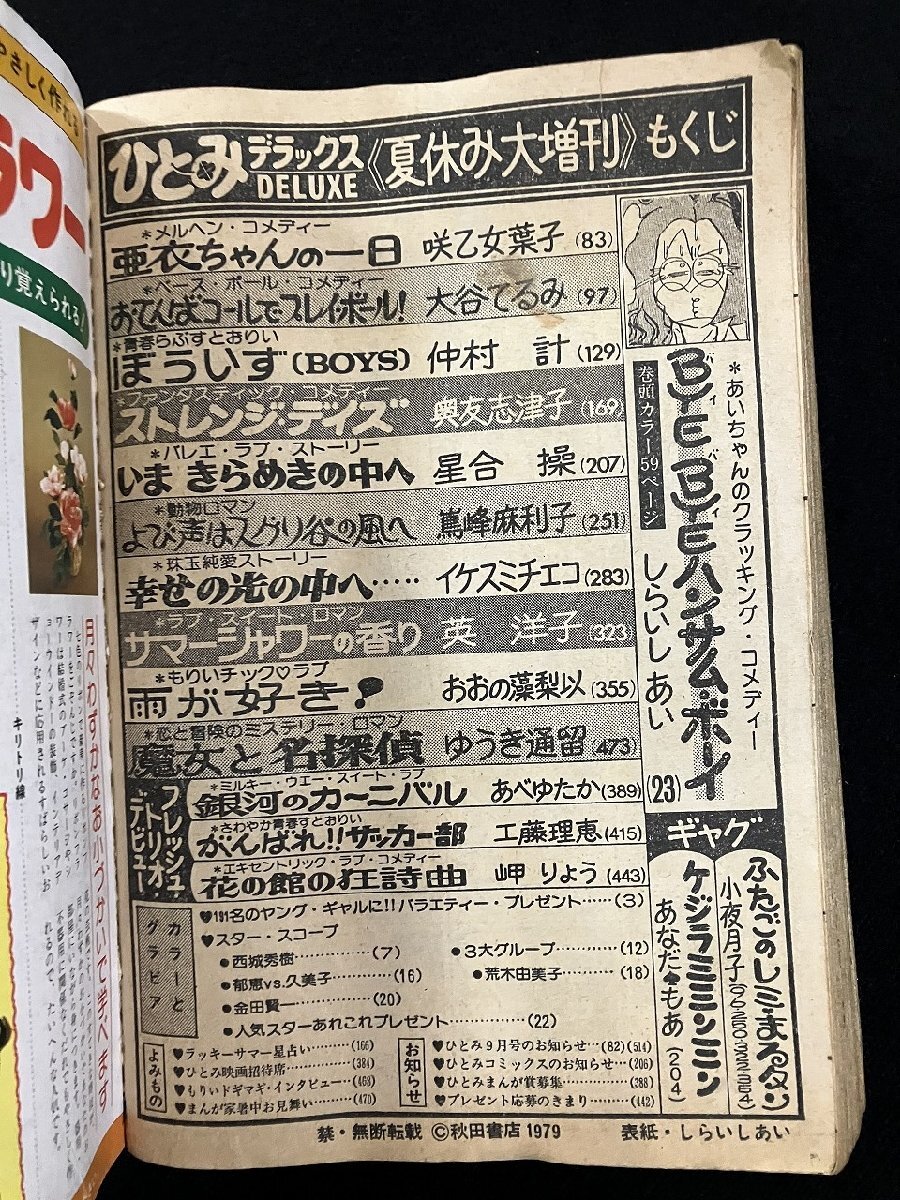 ひとみデラックス DELUXE 《夏休み大増刊》もくじ
*あいちゃんのクラッキング・コメディー
BYE BYE ハンサム・ボーイ
バイ バイ
しらいしあい
巻頭カラー59ページ
(23)
*メルヘン・コメディー
亜衣ちゃんの一日 咲乙女葉子 (83)
*ベース・ボール・コメディ
おてんばコールでプレイボール! 大谷てるみ (97)
*青春らぶすとおりい
ぼういず(BOYS) 仲村 計 (129)
*ファンタスティック・コメディー
ストレンジ・デイズ 奥友志津子 (169)
*バレエ・ラブ・ストーリー
いま きらめきの中へ 星合 操 (207)
*動物ロマン
よび声はスグリ谷の風へ 嶌峰麻利子 (251)
*珠玉純愛ストーリー
幸せの光の中へ‥‥‥ イケスミチエコ (283)
*ラブ・スイート・ロマン
サマーシャワーの香り 英 洋子 (323)
*もりいチック♡ラブ
雨が好き? おおの藻梨以 (355)
*恋と冒険のミステリー・ロマン
魔女と名探偵 ゆうき通留 473)
フレッシュ・トリオ・デビュー
*ミルキー・ウエー・スイート・ラブ
銀河のカーニバル あべゆたか (389)
*さわやか青春すとおりい
がんばれ!!サッカー部 工藤理恵 (415)
*エキセントリック・ラブ・コメディー
花の館の狂詩曲 岬 りょう (443)
ギャグ
ふたごのしじまるダン
小夜月子
ケジラミミンミン
あなだ・もあ (204)
カラーとグラビア
♥191名のヤング・ギャルに!!バラエティー・プレゼント……(3)
♥スター・スコープ
●西城秀樹…………(7)
●3大グループ…………(12)
●郁恵vs.久美子…………(16)
●荒木由美子…………(18)
●金田賢一…………(20)
●人気スターあれこれプレゼント…………(22)
よみもの
♥ラッキーサマー星占い………(166)
♥ひとみ映画招待席…………(384)
♥もりいドギマギ・インタビュー…(468)
♥まんが家暑中お見舞い………(470)
お知らせ
♥ひとみ9月号のお知らせ…(82)(514)
♥ひとみコミックスのお知らせ…(206)
♥ひとみまんが賞募集…………(388)
♥プレゼント応募のきまり………(442)
禁・無断転載 ©秋田書店 1979 表紙・しらいしあい
やさしく作れる
ラワー
り覚えられる!
月々わずかなおこづかいで学べます
キリトリ線